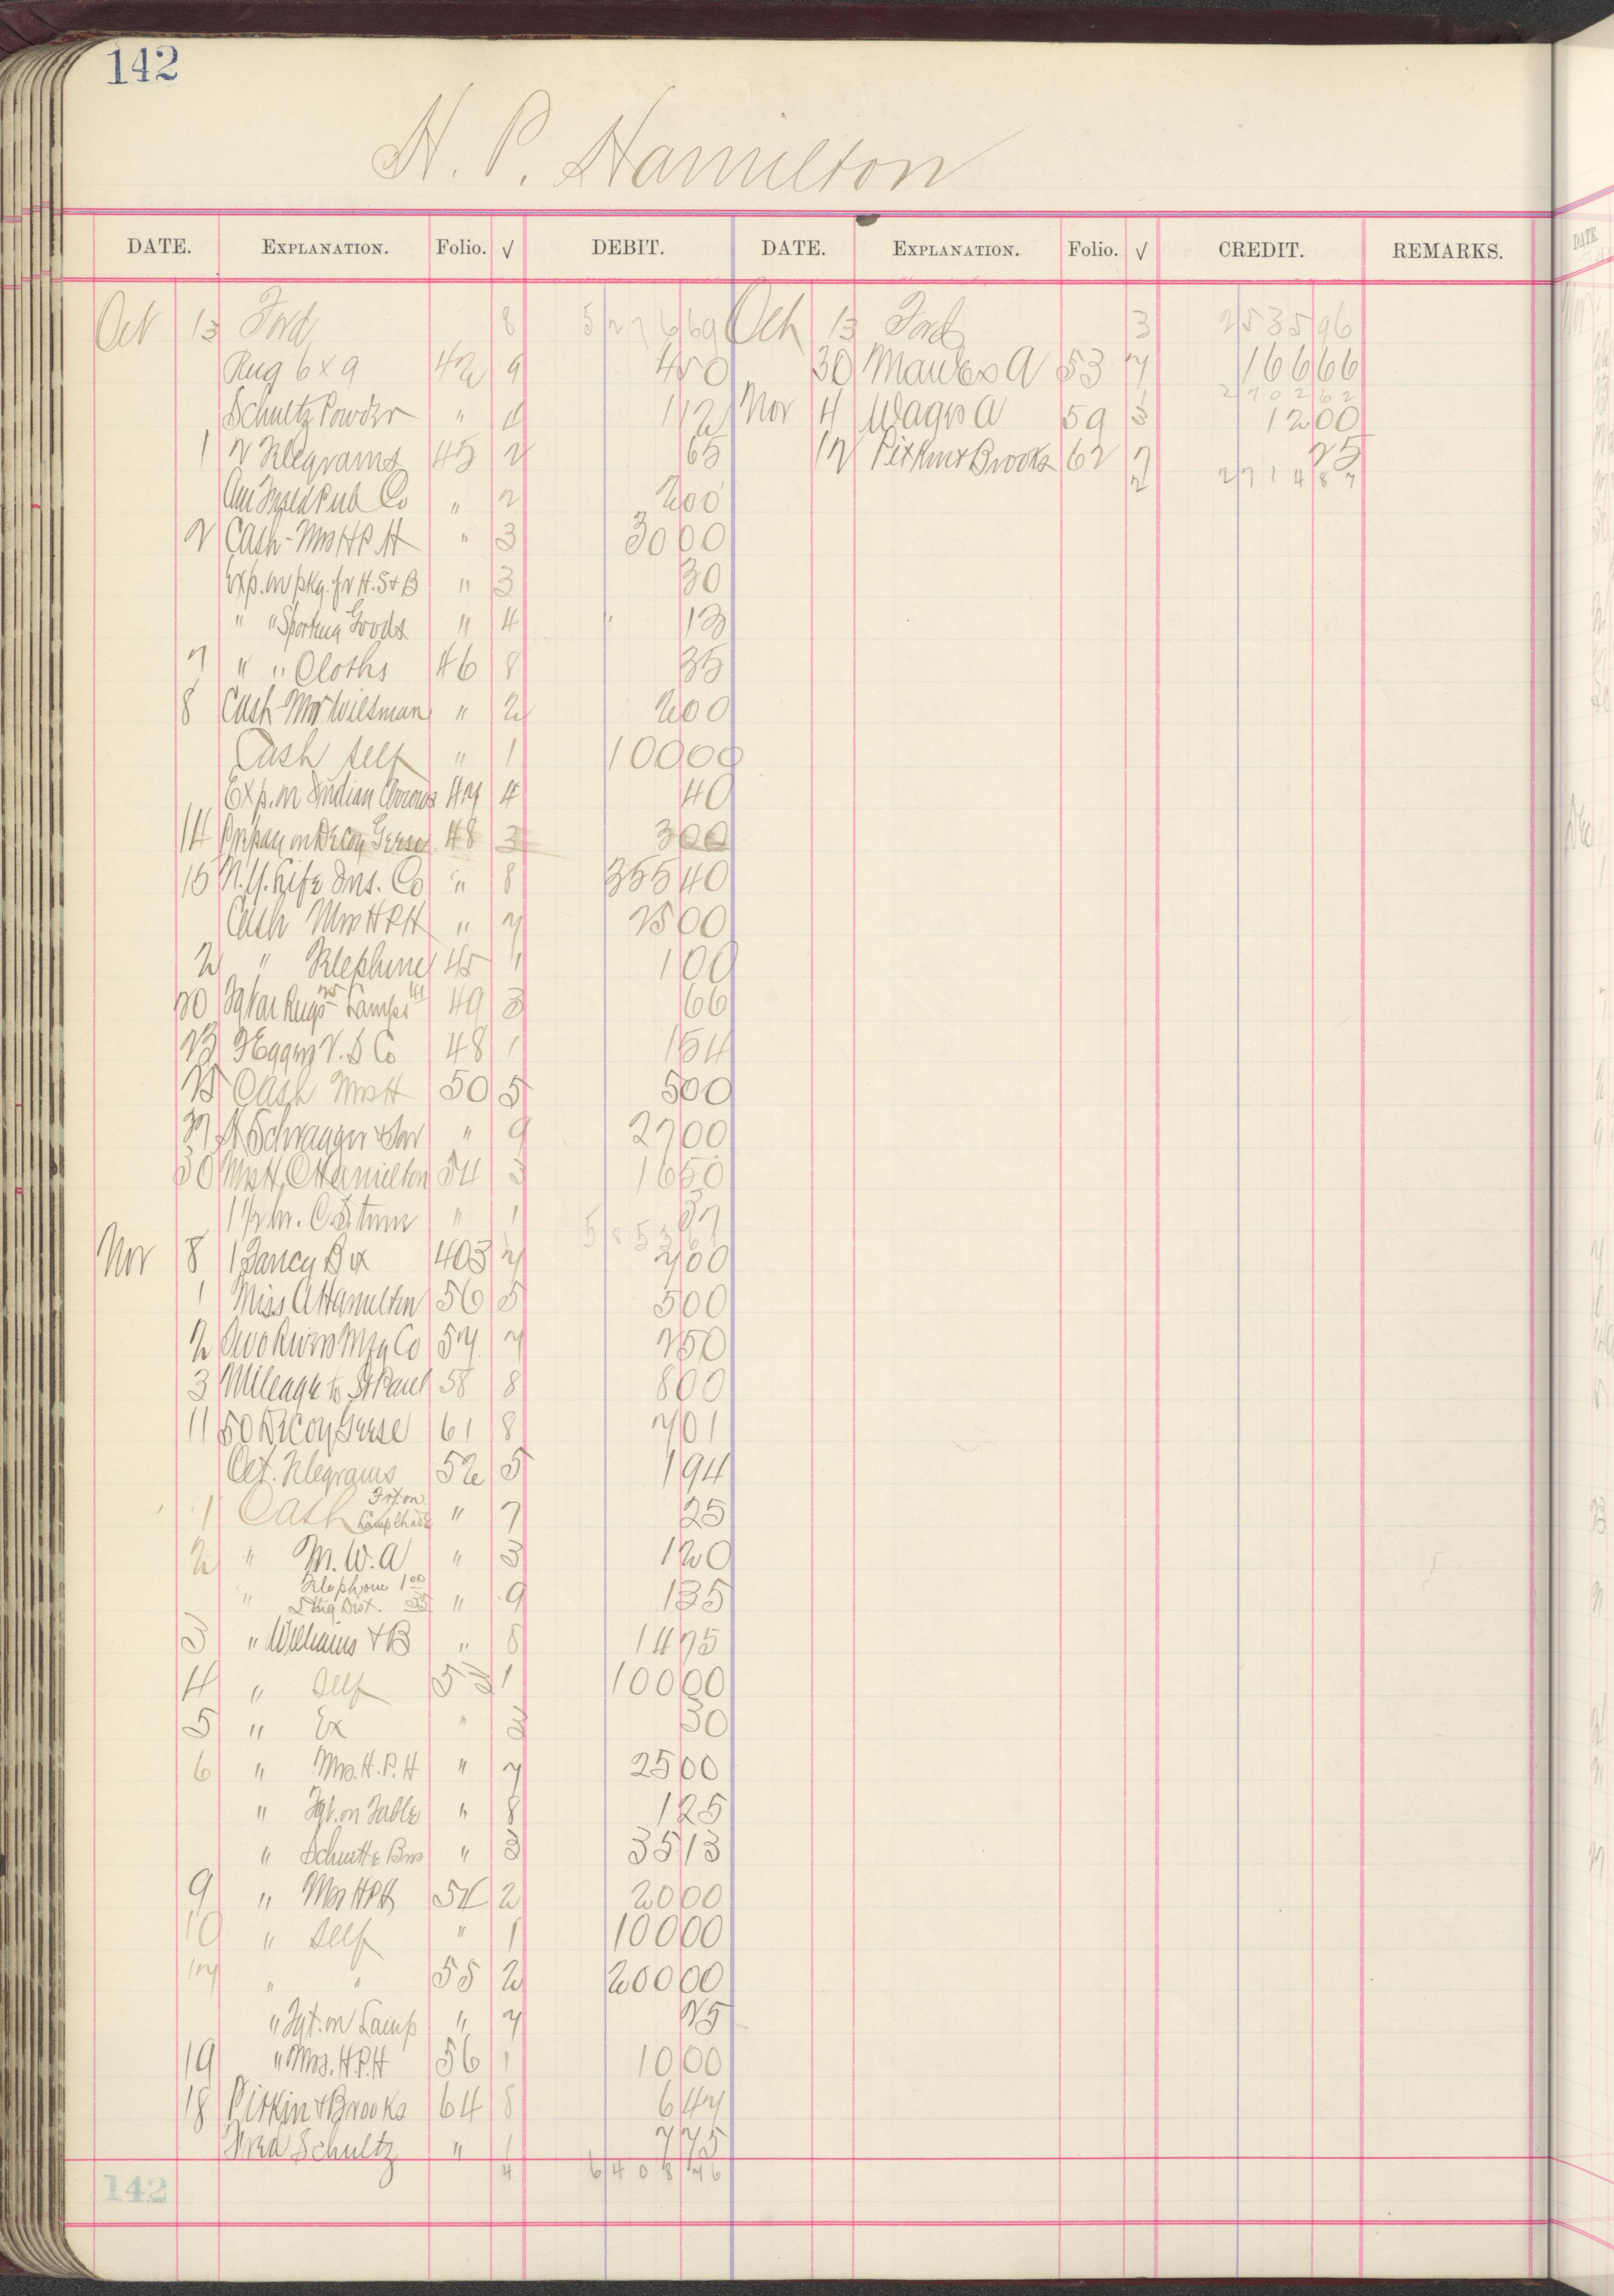 142
H. P. Hamilton
DATE. EXPLANATION. Folio. √ DEBIT. DATE. EXPLANATION. Folio. √ CREDIT. REMARKS.
Oct 13 Ford 8 5276 69 Oct 13 Ford 3 2535 96
Rug 6 x 9 42 9 4 50 30 53 7 166 66
2702 62
Schultz Powder " 1 12 Nov 4 Wages A 59 3 12 00
1 2 Telegrams 45 2 65 12 Pitkin & Brooks 62 7 25
2714 87
Am Pub Co " 2 2 00
2 Cash - Mrs H P H " 3 30 00
Exp. on pkg. fr H. S & B " 3 30
" " Sporting Goods " 4 13
7 " " Cloths 46 8 35
8 Cash Mr Wilsman " 2 2 00
Cash Self " 1 100 00
Exp. on Indian Arrows 47 4 40
14 Prepay on Decoy Geese 48 3 3 00
15 N. Y. Life Ins. Co " 8 355 40
Cash Mrs H P H " 7 25 00
2 " Telephone 45 1 1 00
20 Fgt on Rugs 25 Lamps 41 49 3 66
23 V. S Co 48 1 1 54
25 Cash Mrs H 50 5 5 00
27 & Son " 9 27 00
30 Hamilton 54 3 16 50
1 1/2 hr. C. " 1 37
Nov 8 1 Fancy Box 403 7 00
1 Miss A Hamilton 56 5 5 00
2 Two Rivers Mfg Co 57 7 2 50
3 Mileage to St Paul 58 8 8 00
11 50 Decoy Geese 61 8 7 01
Oct. Telegrams 52 5 1 94
1 Cash Frt. on Lamp Shade " 7 25
2 " M. W. A " 3 1 20
" Telephone 1 00
Long Dist. 35 " 9 1 35
3 " Williams & B " 8 14 75
4 " Self 53 1 100 00
5 " Ex " 3 30
6 " Mrs. H. P. H " 7 25 00
" Fgt. on Table " 8 1 25
" Schuette Bros " 3 35 13
9 " Mrs H P H 54 2 20 00
10 " Self " 1 100 00
17 " " 55 2 200 00
" Fgt. on Lamp " 7 25
19 " Mrs. H. P. H 56 1 10 00
18 Pitkin & Brooks 64 8 6 47
Fred Schultz " 1 7 75
4 6408 76
142